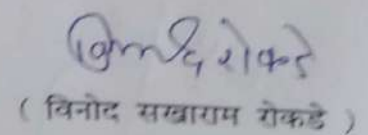 विनोद रोकडे
( विनोद सखाराम रोकडे )